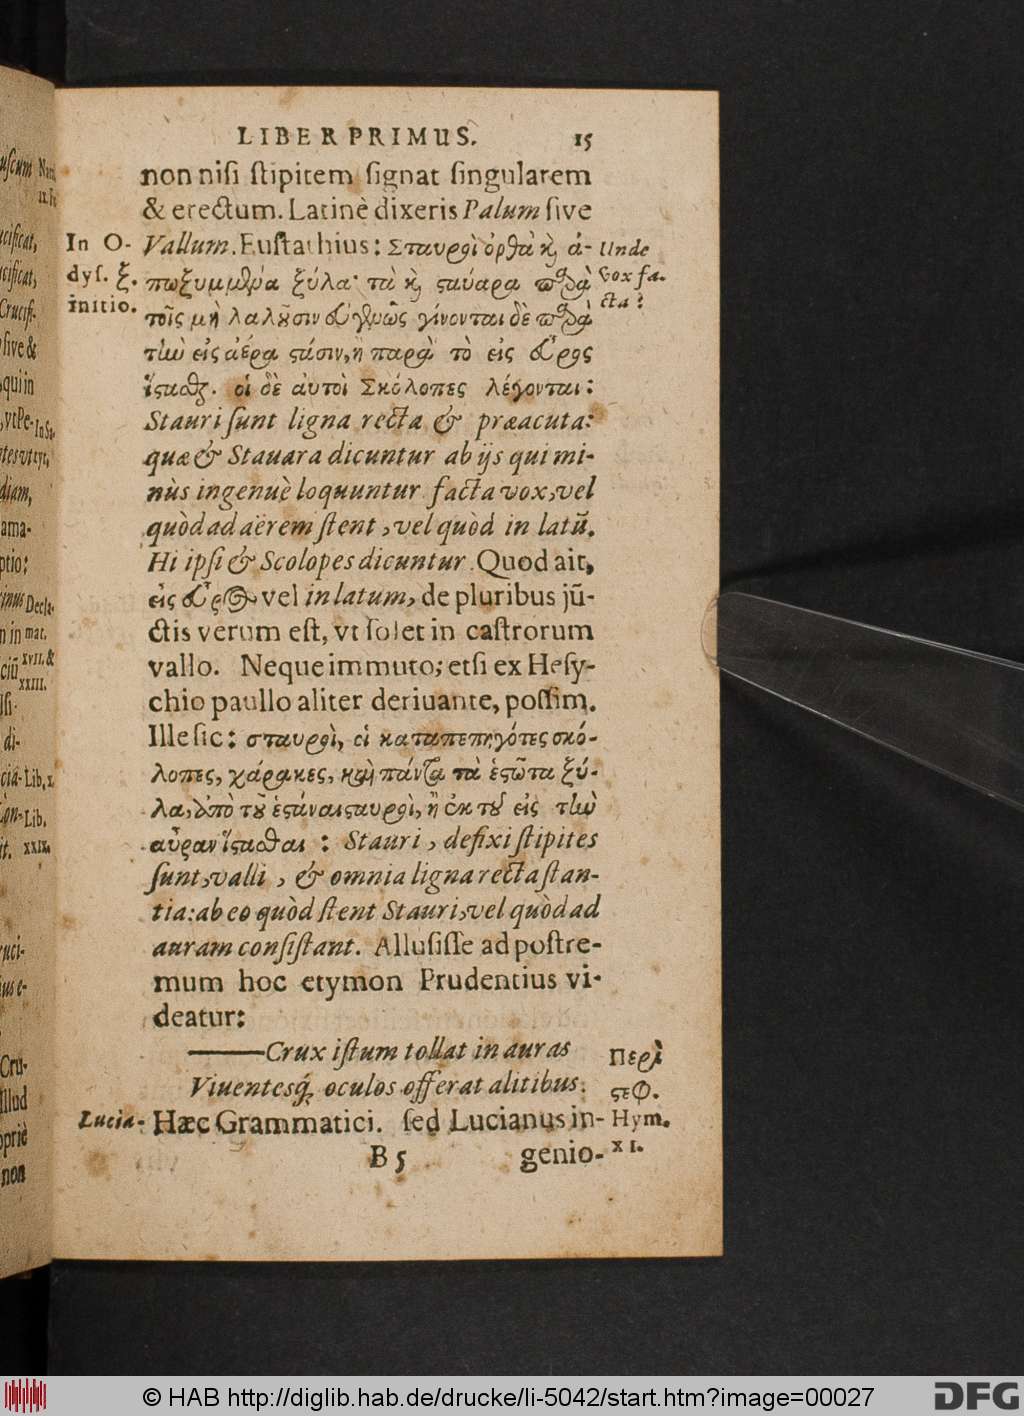 LIBER PRIMUS. 15
non nisi stipitem signat singularem
& erectum. Latinè dixeris Palum sive
In O- Vallum. Eustathius: Σταυροὶ ὀρθὰ κ̀ ἀ- Unde
dys. ξ. πωξυμμένα ξύλα· τὰ κ̀ ϛαύαρα παρὰ vox fa-
initio. τοῖς μὴ λαλοῦσιν ἀγενῶς γίνονται δὲ παρὰ cta?
τὴν εἰς ἀέρα ϛάσιν, ἢ παρὰ τὸ εἰς εὖρος
ἵϛαϑζ. οἱ δὲ αὐτοὶ Σκόλοπες λέγονται:
Stauri sunt ligna recta & præacuta:
quæ & Stauara dicuntur ab ijs qui mi-
nùs ingenuè loquuntur facta vox, vel
quòd ad aërem stent, vel quòd in latū.
Hi ipsi & Scolopes dicuntur. Quod ait,
εἰς εὖρος vel in latum, de pluribus jū-
ctis verum est, vt solet in castrorum
vallo. Neque immuto; etsi ex Hesy-
chio paullo aliter deriuante, possim.
Ille sic: σταυροὶ, οἱ καταπεπηγότες σκό-
λοπες, χάρακες, καὶ πάντα τὰ ἑϛῶτα ξύ-
λα, ἀπὸ τοῦ ἑϛάναι ϛαυροὶ, ἢ ἐκ τοῦ εἰς τὴν
αὖραν ἵϛαϑαι: Stauri, defixi stipites
sunt, valli, & omnia ligna recta stan-
tia: ab eo quòd stent Stauri, vel quòd ad
auram consistant. Allusisse ad postre-
mum hoc etymon Prudentius vi-
deatur:
——Crux istum tollat in auras Περὶ
Viuentesq́; oculos offerat alitibus. ϛεφ.
Lucia- Hæc Grammatici. sed Lucianus in- Hym.
B 5 genio- XI.
Decla-
mat.
XVII. &
XXIII.
Lib. X.
Lib.
XXIX.
non
© HAB http://diglib.hab.de/drucke/li-5042/start.htm?image=00027
DFG